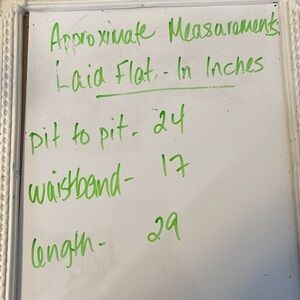 Approximate Measurements
Laid Flat. - In Inches
pit to pit. 24
waistband- 17
length- 29